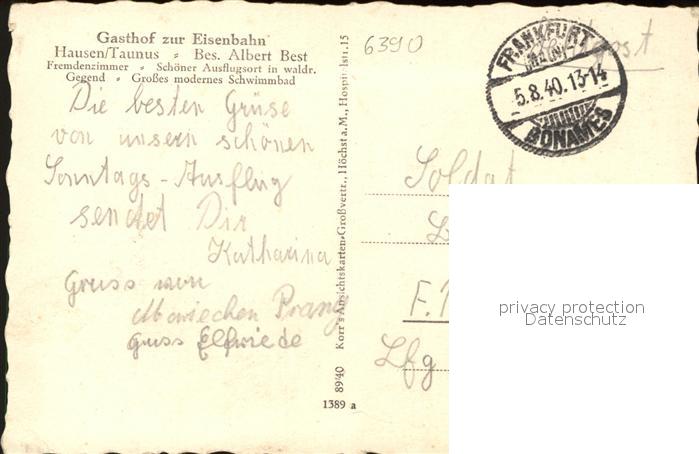 Gasthof zur Eisenbahn
Hausen/Taunus - Bes. Albert Best
Fremdenzimmer - Schöner Ausflugsort in waldr.
Gegend - Großes modernes Schwimmbad
Die besten Grüse
von unsern schönen
Sonntags-Ausflug
sendet Dir
Katharina
Gruss von
Mariechen Prang
Gruss Elfriede
89/40 Korr's Ansichtskarten-Großvertr., Höchst a.M., Hospitalstr. 15
1389 a
6390
Feldpost
FRANKFURT
(MAIN)
5.8.40.13-14
BONAMES
Soldat
F.
Lfg
privacy protection
Datenschutz